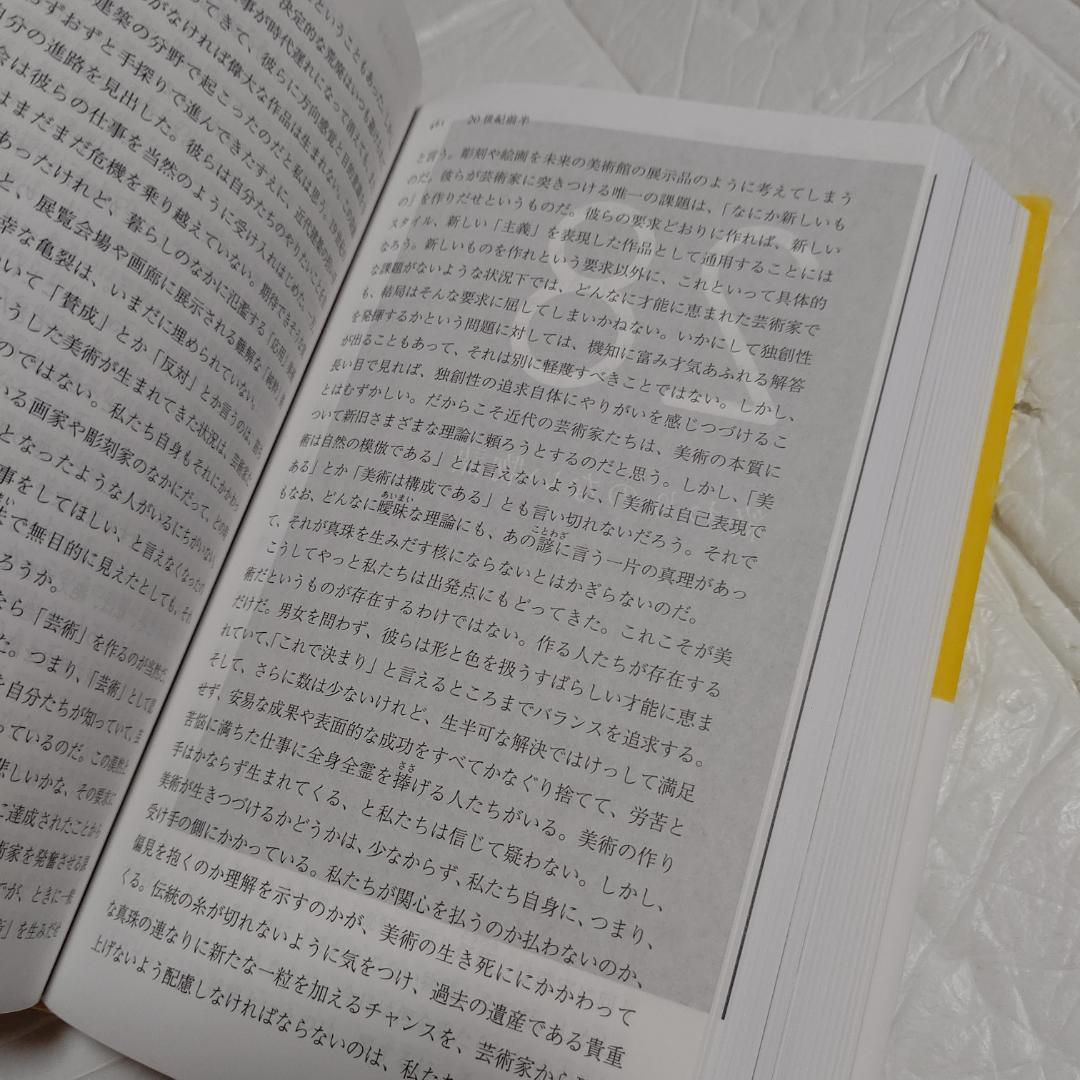 ということもあった。
決定的な荒廃はいつも避
ってきて、彼らに方向感覚と目的意識
事が時代遅れになって消えても、
がなければ偉大な作品は生まれない。
建築の分野で起こったのだと私は思う。
おずおずと手探りで進んできたすえに、近代建築の
自分の進路を見出した。彼らは自分たちのやりたいことを
会は彼らの仕事を当然のように受け入れはじめた。
はまだまだ危機を乗り越えていない。期待できそうな
あったけれど、暮らしのなかに氾濫する「応用」
と、展覧会場や画廊に展示される難解な「純粋」
幸な亀裂は、いまだに埋められていない。
いて「賛成」とか「反対」とか言うのは、
うした美術が生まれてきた状況は、芸術
のではない。私たち自身もそれにかかわ
いる画家や彫刻家のなかにだって、
となったような人がいるにちがいない
事をしてほしい、と言えなくなった
で無目的に見えたとしても、それ
ろうか。
なら「芸術」を作るのが当然だ
た。つまり、「芸術」として
を自分たちが知っていて、
っているのだ。この
悲しいかな、その要求
に達成されたことから
術家を発奮させる
が、ときに一般
」を生みだせ
20世紀前半
と言う。彫刻や絵画を未来の美術館の展示品のように考えてしまう
のだ。彼らが芸術家に突きつける唯一の課題は、「なにか新しいも
の」を作りだせというものだ。彼らの要求どおりに作れば、新しい
スタイル、新しい「主義」を表現した作品として通用することには
なろう。新しいものを作れという要求以外に、これといって具体的
な課題がないような状況下では、どんなに才能に恵まれた芸術家で
も、結局はそんな要求に屈してしまいかねない。いかにして独創性
を発揮するかという問題に対しては、機知に富み才気あふれる解答
が出ることもあって、それは別に軽蔑すべきことではない。しかし、
長い目で見れば、独創性の追求自体にやりがいを感じつづけるこ
とはむずかしい。だからこそ近代の芸術家たちは、美術の本質に
ついて新旧さまざまな理論に頼ろうとするのだと思う。しかし、「美
術は自然の模倣である」とは言えないように、「美術は自己表現で
ある」とか「美術は構成である」とも言い切れないだろう。それで
もなお、どんなに曖昧な理論にも、あの諺に言う一片の真理があっ
て、それが真珠を生みだす核にならないとはかぎらないのだ。
こうしてやっと私たちは出発点にもどってきた。これこそが美
術だというものが存在するわけではない。作る人たちが存在する
だけだ。男女を問わず、彼らは形と色を扱うすばらしい才能に恵ま
れていて、「これで決まり」と言えるところまでバランスを追求する。
そして、さらに数は少ないけれど、生半可な解決ではけっして満足
せず、安易な成果や表面的な成功をすべてかなぐり捨てて、労苦と
苦悩に満ちた仕事に全身全霊を捧げる人たちがいる。美術の作り
手はかならず生まれてくる、と私たちは信じて疑わない。しかし、
美術が生きつづけるかどうかは、少なからず、私たち自身に、つまり、
受け手の側にかかっている。私たちが関心を払うのか払わないのか、
偏見を抱くのか理解を示すのかが、美術の生き死ににかかわって
くる。伝統の糸が切れないように気をつけ、過去の遺産である貴重
な真珠の連なりに新たな一粒を加えるチャンスを、芸術家から
上げないよう配慮しなければならないのは、私た